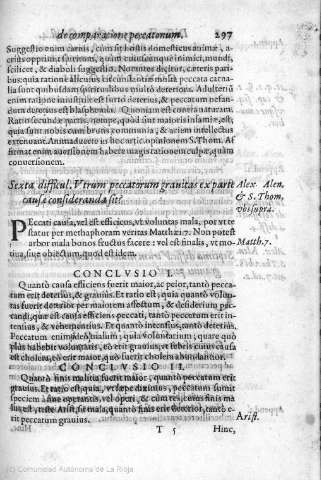 de comparatione peccatorum. 297
Suggestio enim carnis, cùm sit hostis domesticus animæ, a-
criùs opprimit spiritum, quàm cæteri
scilicet, & diaboli suggestio. Nominor dicitur, cæteris pari-
bus: quia ratione alicuius circunstantiæ mixta peccata carna-
lia sunt quibusdam spiritualibus multò deteriora. Adulteriũ
enim ratione iniustitiæ est furto deterius, & peccatum nefan-
dum deterius est blasphemia. Quoniam est contra naturam.
Ratio secundæ partis, nempe, quòd sint maioris infamiæ, est,
quia sunt nobis cum brutis communia, & aciem intellectus
extenuant. Animaduerto in hoc artic. opinionem S. Thom. Af
firmat enim auersionem habere magis rationem culpæ, quàm
conuersionem.
Sexta difficul. Vtrum peccatorum grauitas ex parte
causæ consideranda sit?
Alex Alen.
& S. Thom.
vbi supra.
PEccati causa, vel est efficiens, vt voluntas mala, por vt te
statur per metaphoram veritas Matthæi 7. Non potest
arbor mala bonos fructus facere: vel est finalis, vt mo-
tiua, siue obiectum, quod est idem.
Matth. 7.
CONCLVSIO I.
Quantò causa efficiens fuerit maior, ac peior, tantò pecca-
tum erit deterius, & grauius. Et ratio est; quia quantò volun-
tas fuerit deterior per maiorem affectum, & desiderium pec-
candi, quæ est causa efficiens peccati, tantò peccatum erit in-
tensius, & vehementius. Et quantò intensius, tantò deterius.
Peccatum enim est quid malum, quia voluntarium, quare quò
plus habebit voluntatis, eò erit grauius, vt febris cuius causa
est cholera, eò erit maior, quò fuerit cholera abundantior.
CONCLVSIO II.
Quantò finis malitia fuerit maior, quantò peccatum erit
grauius. Et ratio est quia, vt sæpe diximus, peccatum sumit
speciem à fine operantis, vel operis, & cum res, cuius finis ma
lus est, teste Arist. sit mala, quantò finis erit deterior, tantò e-
rit peccatum grauius.
Arist.
T 5 Hinc,
(c) Comunidad Autónoma de La Rioja